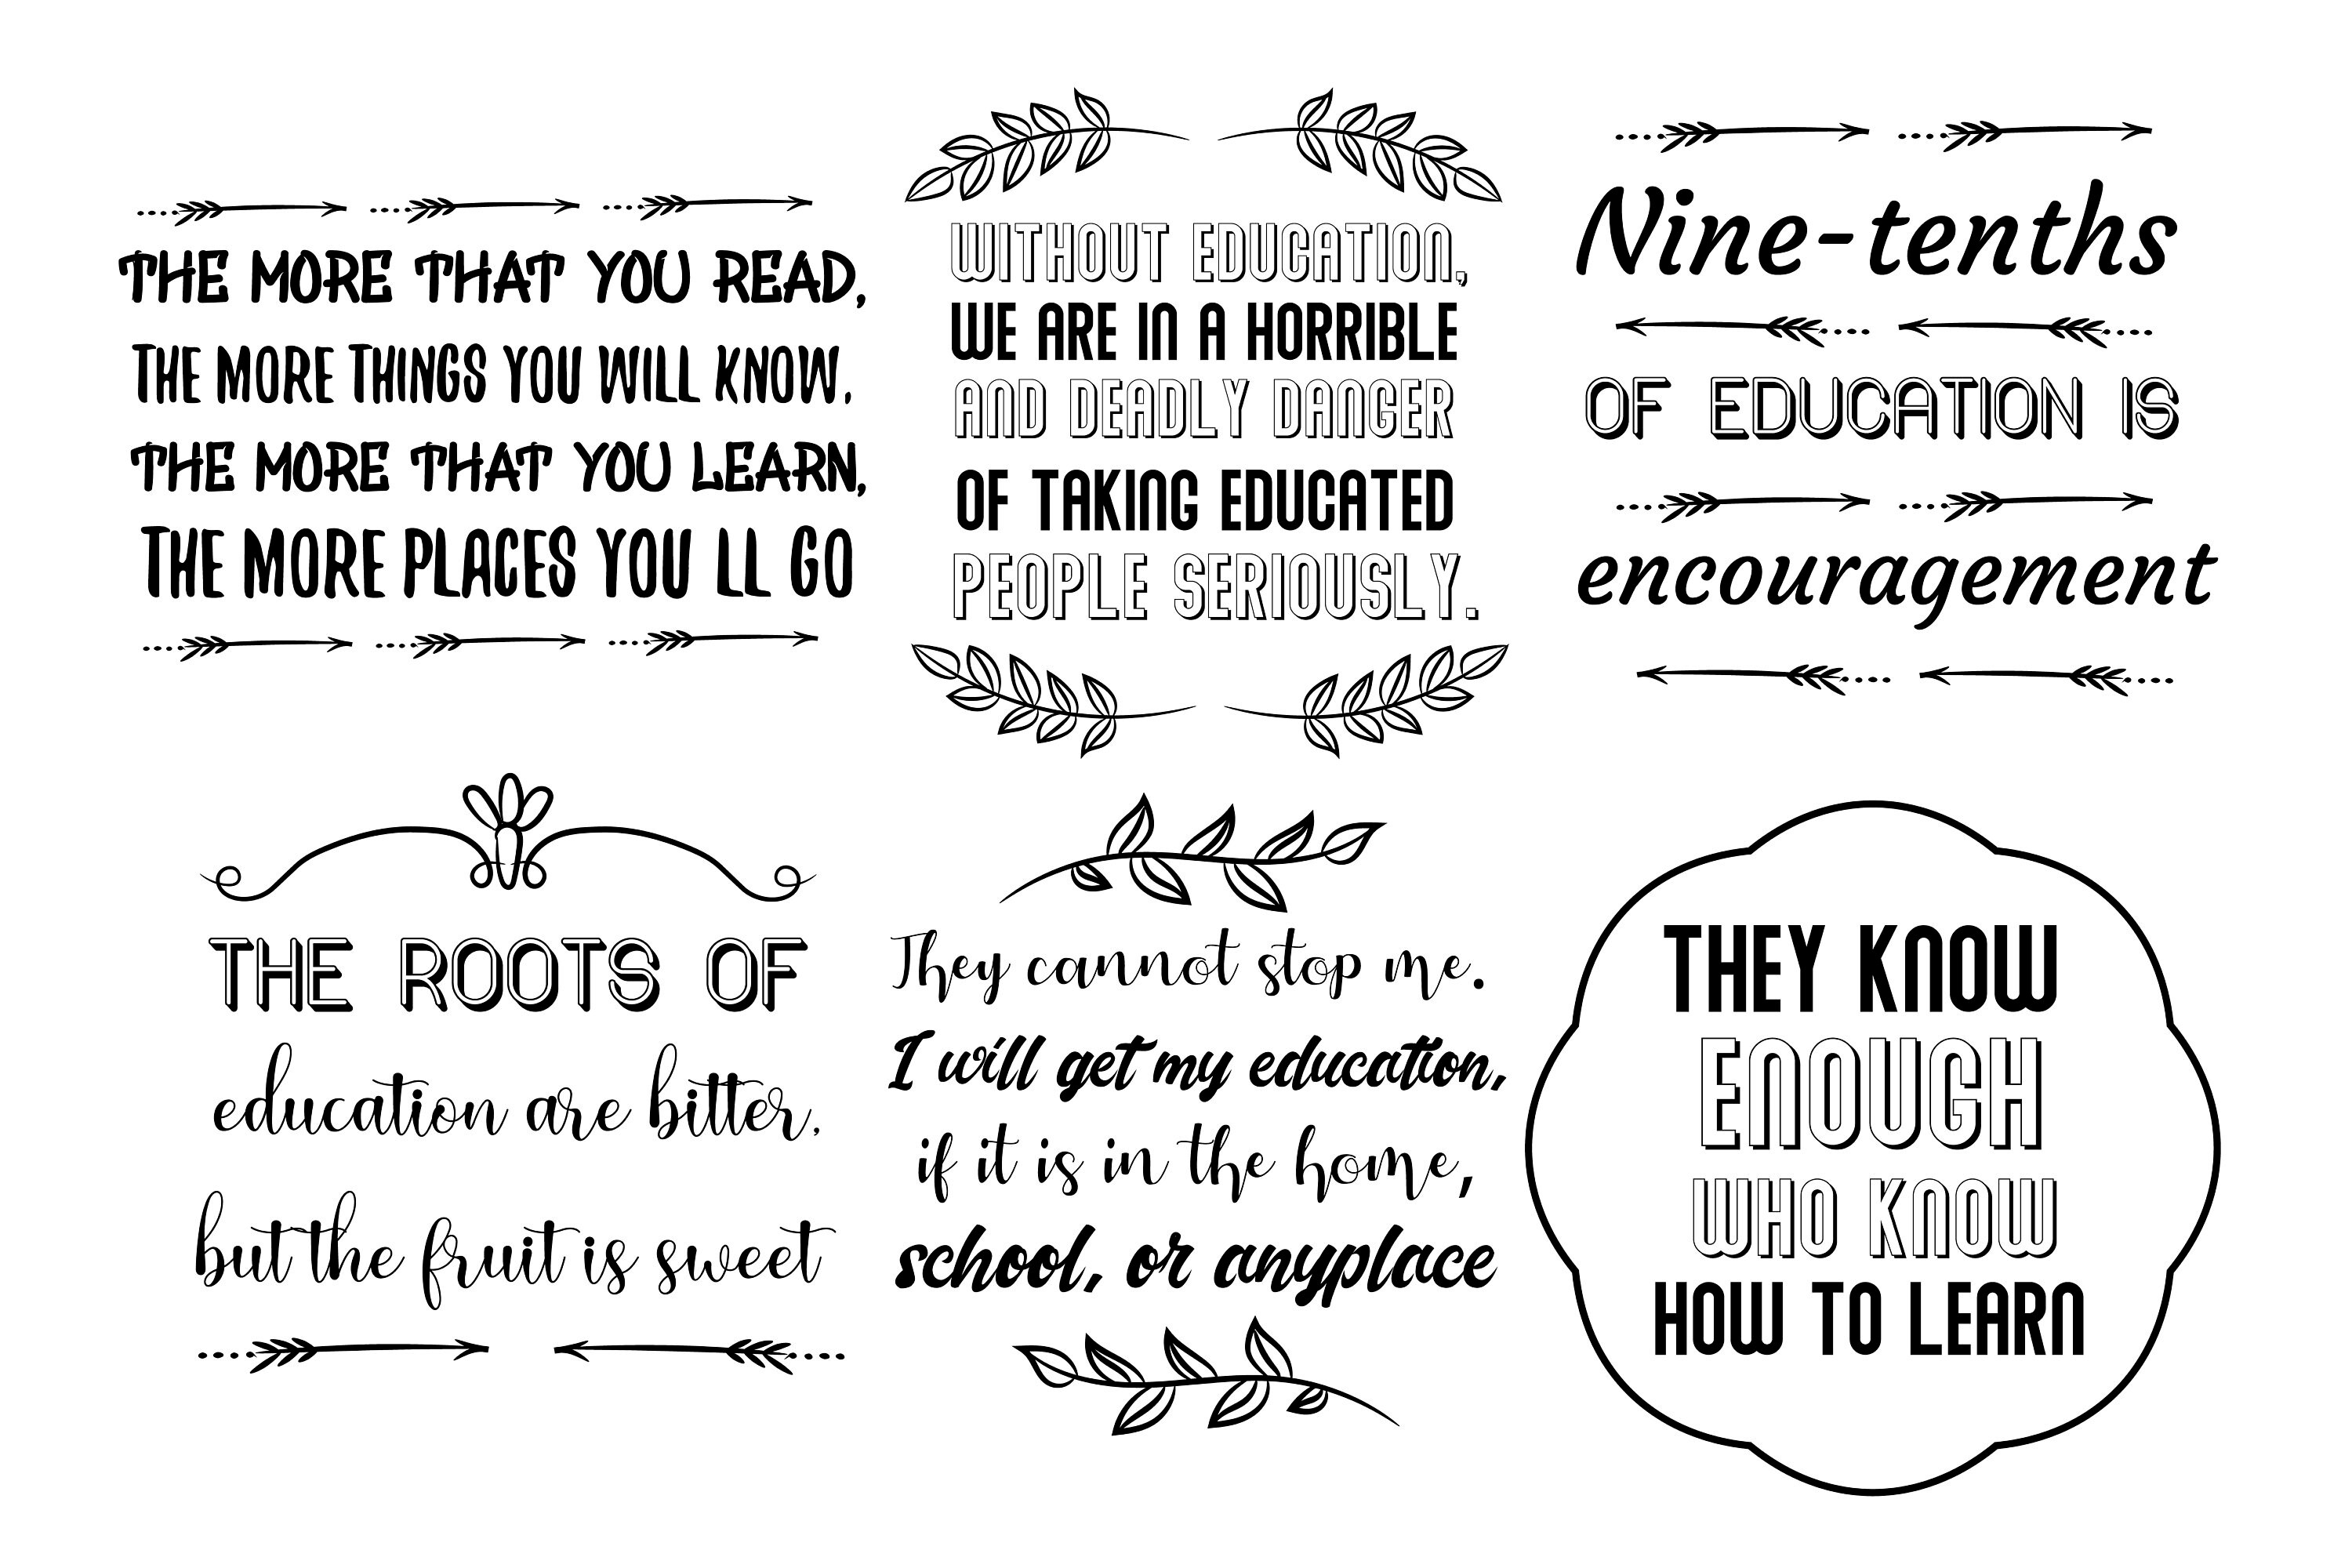 THE MORE THAT YOU READ,
THE MORE THINGS YOU WILL KNOW.
THE MORE THAT YOU LEARN,
THE MORE PLACES YOU LL GO
WITHOUT EDUCATION,
WE ARE IN A HORRIBLE
AND DEADLY DANGER
OF TAKING EDUCATED
PEOPLE SERIOUSLY.
Nine-tenths
OF EDUCATION IS
encouragement
THE ROOTS OF
education are bitter,
but the fruit is sweet
They cannot stop me.
I will get my education,
if it is in the home,
school, or anyplace
THEY KNOW
ENOUGH
WHO KNOW
HOW TO LEARN